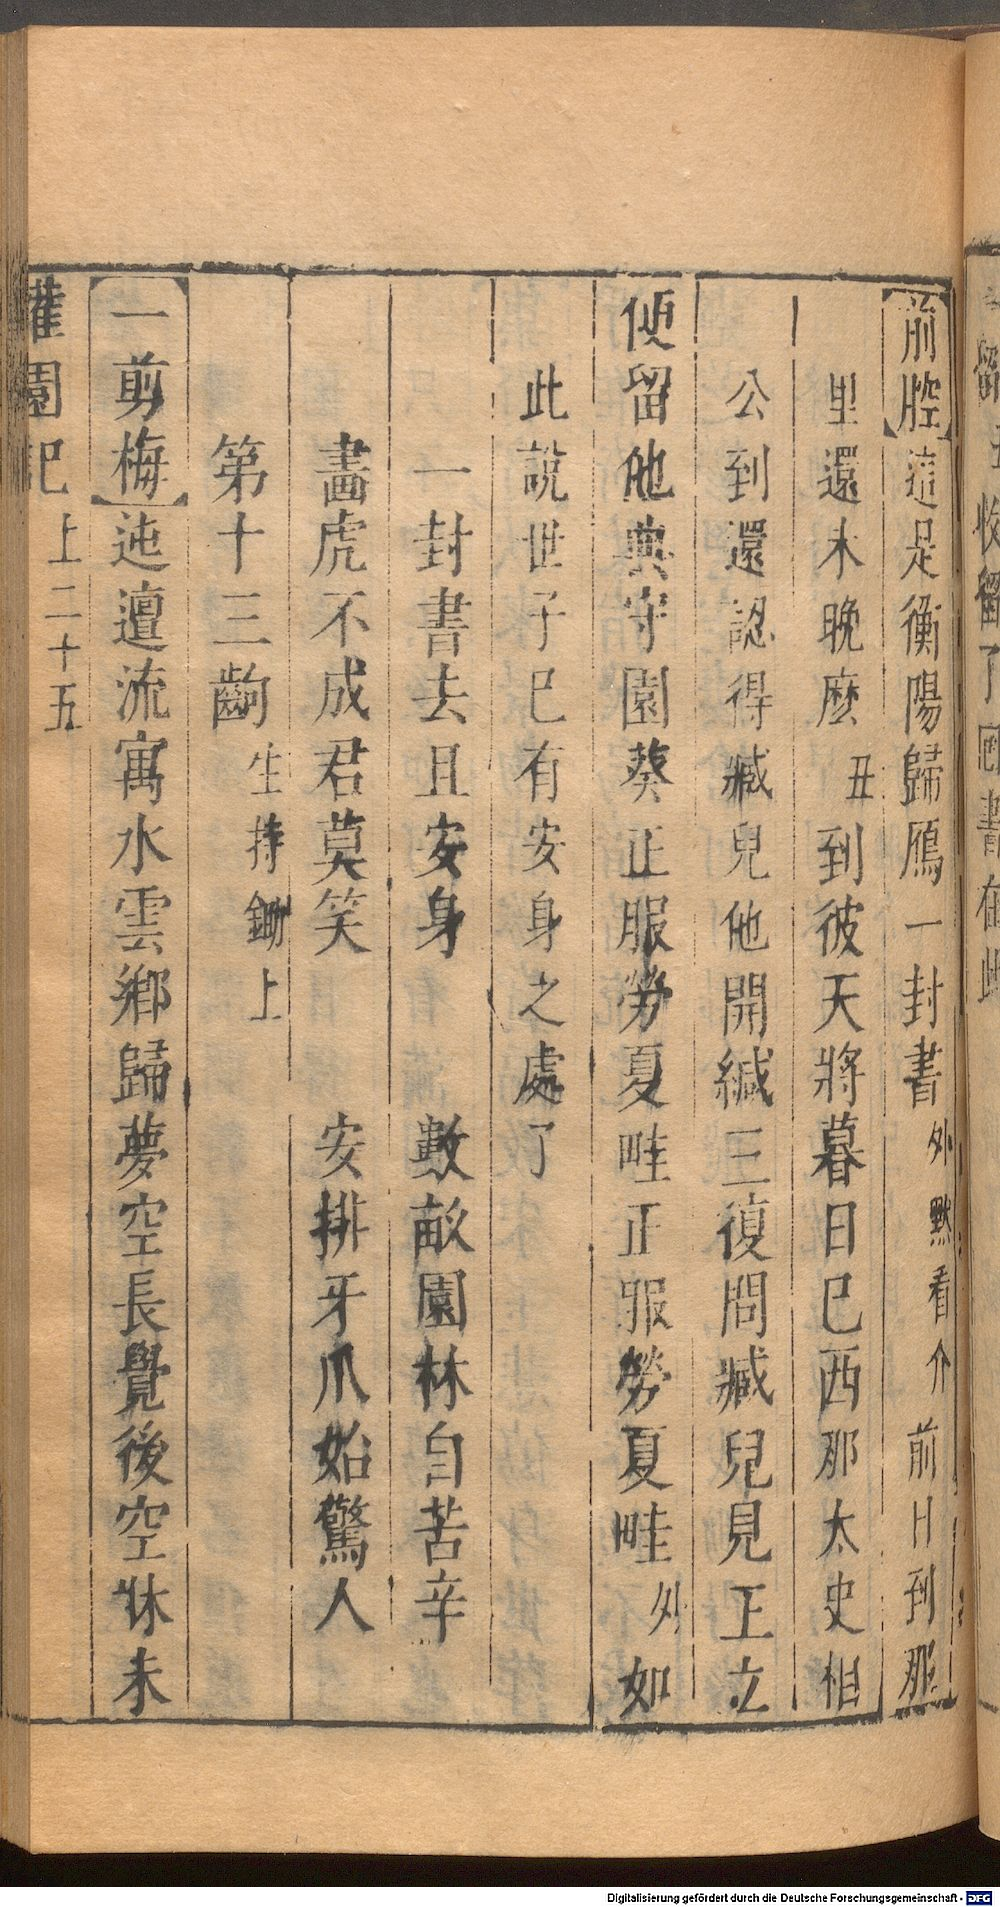 收留了回書在此
前腔這是衡陽歸鴈一封書外黙看介前日到那
里還未晚麽丑到彼天將暮日已西那太史相
公到還認得臧兒他開緘三復問臧兒見王立
便留他典守園葵正服勞夏畦正服勞夏畦外如
此說世子已有安身之處了
一封書去且安身　數畝園林自苦辛
畵虎不成君莫笑　安排牙爪始驚人
第十三齣生持鋤上
一剪梅迍邅流寓水雲鄉歸夢空長覺後空牀未
灌園記　上二十五
Digitalisierung gefördert durch die Deutsche Forschungsgemeinschaft - DFG